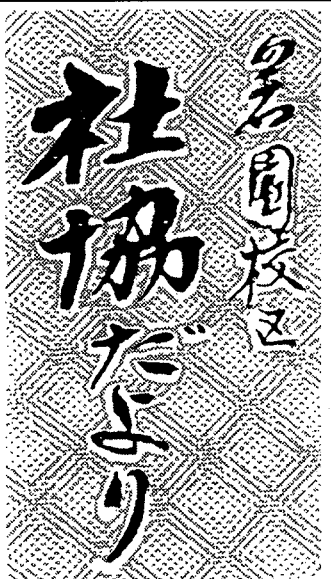 岩園校区
社協だより